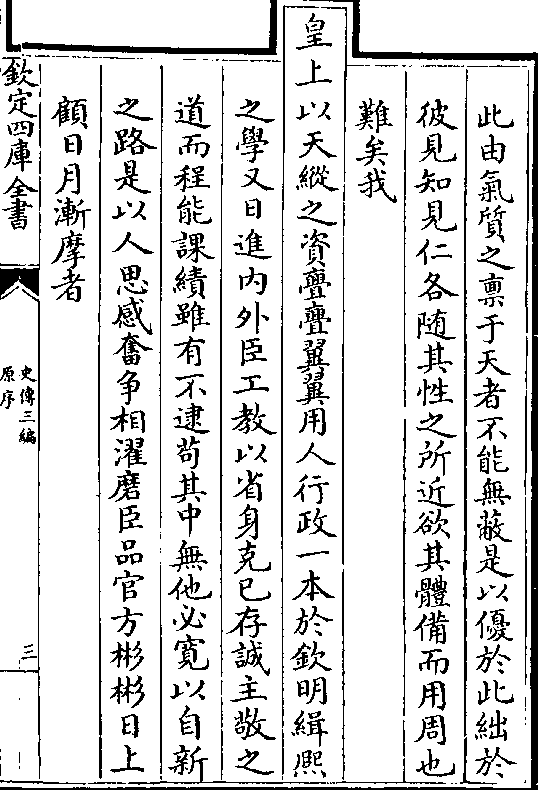 此由氣質之稟于天者不能無蔽是以優於此絀於
彼見知見仁各随其性之所近欲其體備而用周也
難矣我
皇上以天縱之資亹亹翼翼用人行政一本於欽明緝熙
之學又日進内外臣工教以省身克己存誠主敬之
道而程能課績雖有不逮苟其中無他必寛以自新
之路是以人思感奮争相濯磨臣品官方彬彬日上
顧日月漸摩者
欽定四庫全書
史傳三編
原序
三